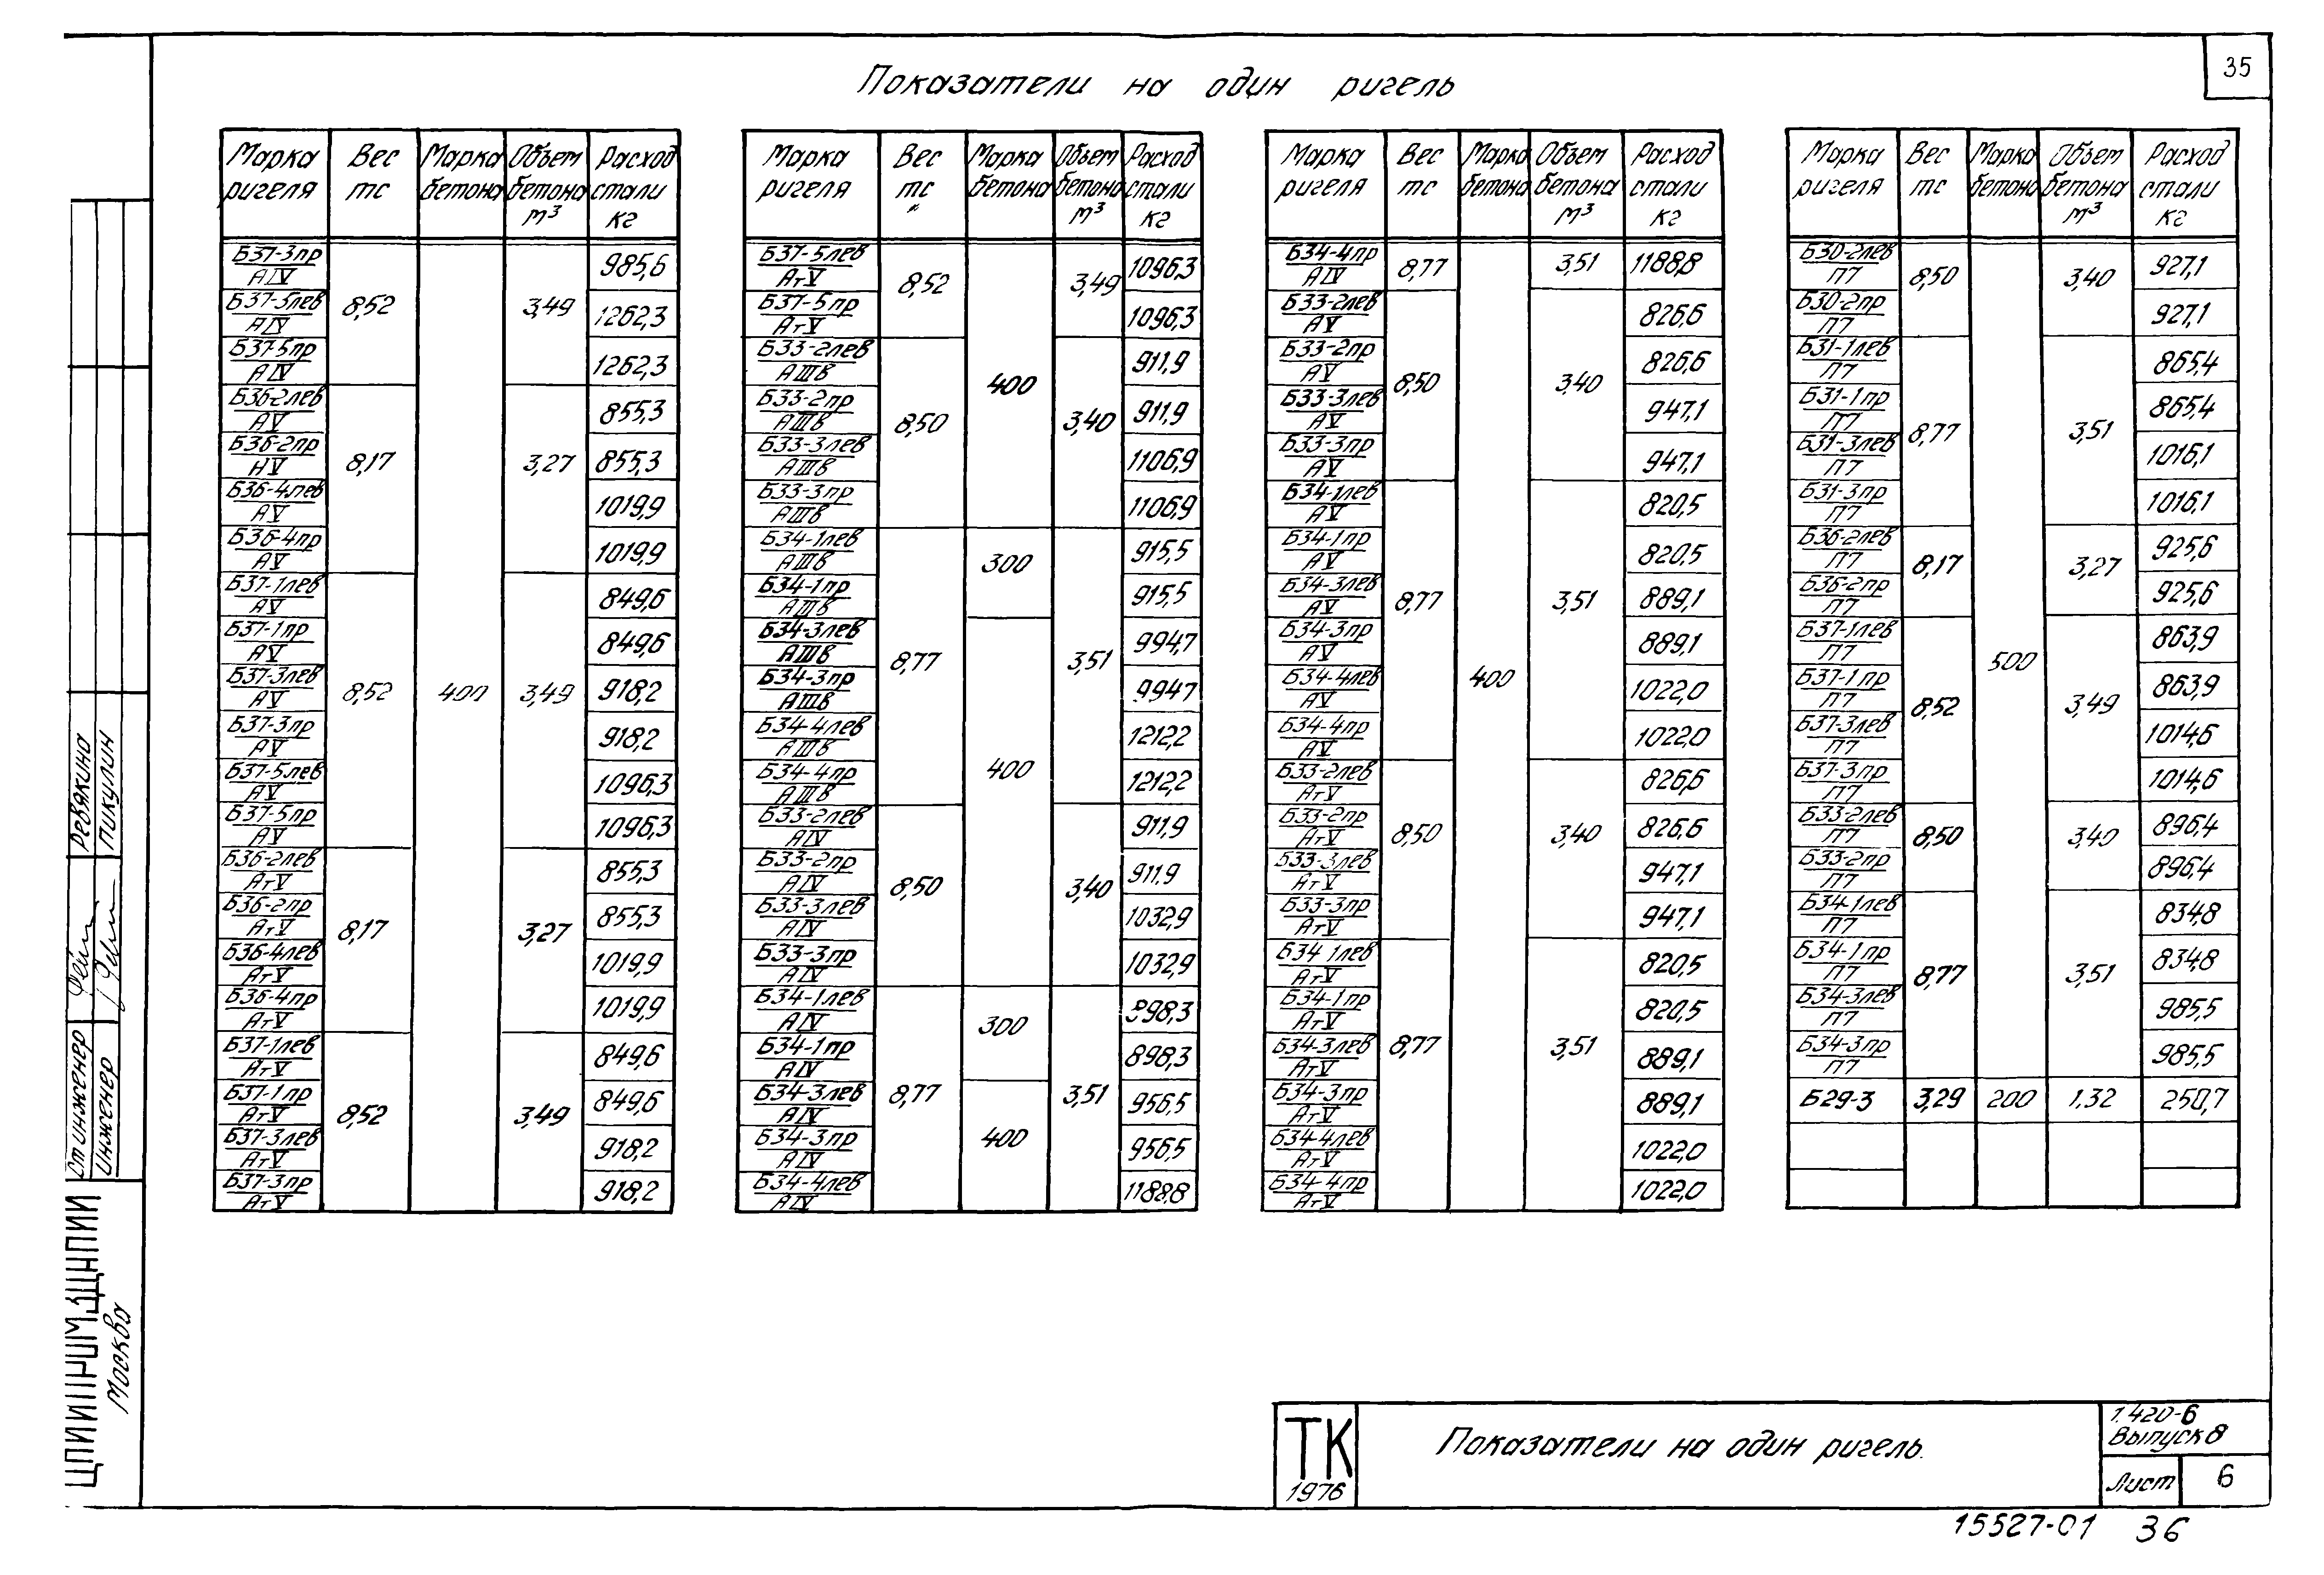 35
Показатели на один ригель
Марка ригеля | Вес тс | Марка бетона | Объем бетона м³ | Расход стали кг
Б37-3пр/АIV | 8,52 | 400 | 3,49 | 985,6
Б37-5лев/АIV | 1262,3
Б37-5пр/АIV | 1262,3
Б36-2лев/АV | 8,17 | 3,27 | 855,3
Б36-2пр/НV | 855,3
Б36-4лев/АV | 1019,9
Б36-4пр/АV | 1019,9
Б37-1лев/АV | 8,52 | 3,49 | 849,6
Б37-1пр/АV | 849,6
Б37-3лев/АV | 918,2
Б37-3пр/АV | 918,2
Б37-5лев/АV | 1096,3
Б37-5пр/АV | 1096,3
Б36-2лев/АтV | 8,17 | 3,27 | 855,3
Б36-2пр/АтV | 855,3
Б36-4лев/АтV | 1019,9
Б36-4пр/АтV | 1019,9
Б37-1лев/АтV | 8,52 | 3,49 | 849,6
Б37-1пр/АтV | 849,6
Б37-3лев/АтV | 918,2
Б37-3пр/АтV | 918,2
Марка ригеля | Вес тс | Марка бетона | Объем бетона м³ | Расход стали кг
Б37-5лев/АтV | 8,52 | 400 | 3,49 | 1096,3
Б37-5пр/АтV | 1096,3
Б33-2лев/АIIIв | 8,50 | 3,40 | 911,9
Б33-2пр/АIIIв | 911,9
Б33-3лев/АIIIв | 1106,9
Б33-3пр/АIIIв | 1106,9
Б34-1лев/АIIIв | 8,77 | 300 | 3,51 | 915,5
Б34-1пр/АIIIв | 915,5
Б34-3лев/АIIIв | 400 | 994,7
Б34-3пр/АIIIв | 994,7
Б34-4лев/АIIIв | 1212,2
Б34-4пр/АIIIв | 1212,2
Б33-2лев/АIV | 8,50 | 3,40 | 911,9
Б33-2пр/АIV | 911,9
Б33-3лев/АIV | 1032,9
Б33-3пр/АIV | 1032,9
Б34-1лев/АIV | 8,77 | 300 | 3,51 | 898,3
Б34-1пр/АIV | 898,3
Б34-3лев/АIV | 400 | 956,5
Б34-3пр/АIV | 956,5
Б34-4лев/АIV | 1188,8
Марка ригеля | Вес тс | Марка бетона | Объем бетона м³ | Расход стали кг
Б34-4пр/АIV | 8,77 | 400 | 3,51 | 1188,8
Б33-2лев/АV | 8,50 | 3,40 | 826,6
Б33-2пр/АV | 826,6
Б33-3лев/АV | 947,1
Б33-3пр/АV | 947,1
Б34-1лев/АV | 8,77 | 3,51 | 820,5
Б34-1пр/АV | 820,5
Б34-3лев/АV | 889,1
Б34-3пр/АV | 889,1
Б34-4лев/АV | 1022,0
Б34-4пр/АV | 1022,0
Б33-2лев/АтV | 8,50 | 3,40 | 826,6
Б33-2пр/АтV | 826,6
Б33-3лев/АтV | 947,1
Б33-3пр/АтV | 947,1
Б34 1лев/АтV | 8,77 | 3,51 | 820,5
Б34-1пр/АтV | 820,5
Б34-3лев/АтV | 889,1
Б34-3пр/АтV | 889,1
Б34-4лев/АтV | 1022,0
Б34-4пр/АтV | 1022,0
Марка ригеля | Вес тс | Марка бетона | Объем бетона м³ | Расход стали кг
Б30-2лев/П7 | 8,50 | 500 | 3,40 | 927,1
Б30-2пр/П7 | 927,1
Б31-1лев/П7 | 8,77 | 3,51 | 865,4
Б31-1пр/П7 | 865,4
Б31-3лев/П7 | 1016,1
Б31-3пр/П7 | 1016,1
Б36-2лев/П7 | 8,17 | 3,27 | 925,6
Б36-2пр/П7 | 925,6
Б37-1лев/П7 | 8,52 | 3,49 | 863,9
Б37-1пр/П7 | 863,9
Б37-3лев/П7 | 1014,6
Б37-3пр/П7 | 1014,6
Б33-2лев/П7 | 8,50 | 3,40 | 896,4
Б33-2пр/П7 | 896,4
Б34-1лев/П7 | 8,77 | 3,51 | 834,8
Б34-1пр/П7 | 834,8
Б34-3лев/П7 | 985,5
Б34-3пр/П7 | 985,5
Б29-3 | 3,29 | 200 | 1,32 | 250,7
Ст инженер Ревякина
Инженер Пикулин
Москва
ТК
1976
Показатели на один ригель.
1.420-6
Выпуск 8
Лист 6
15527-01 36